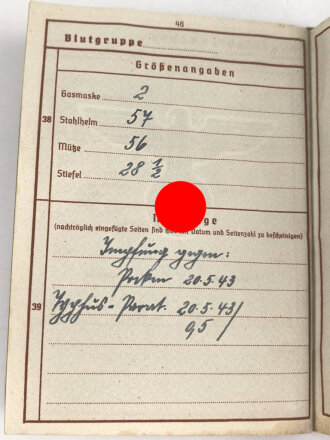 46
Blutgruppe
Größenangaben
Gasmaske 2
38 Stahlhelm 57
Mütze 56
Stiefel 28 ½
(nachträglich eingefügte Seiten sind hier mit Datum und Seitenzahl zu bescheinigen)
Impfung gegen:
Pocken 20.5.43
39 Typhus-Parat. 20.5.43/
0,5